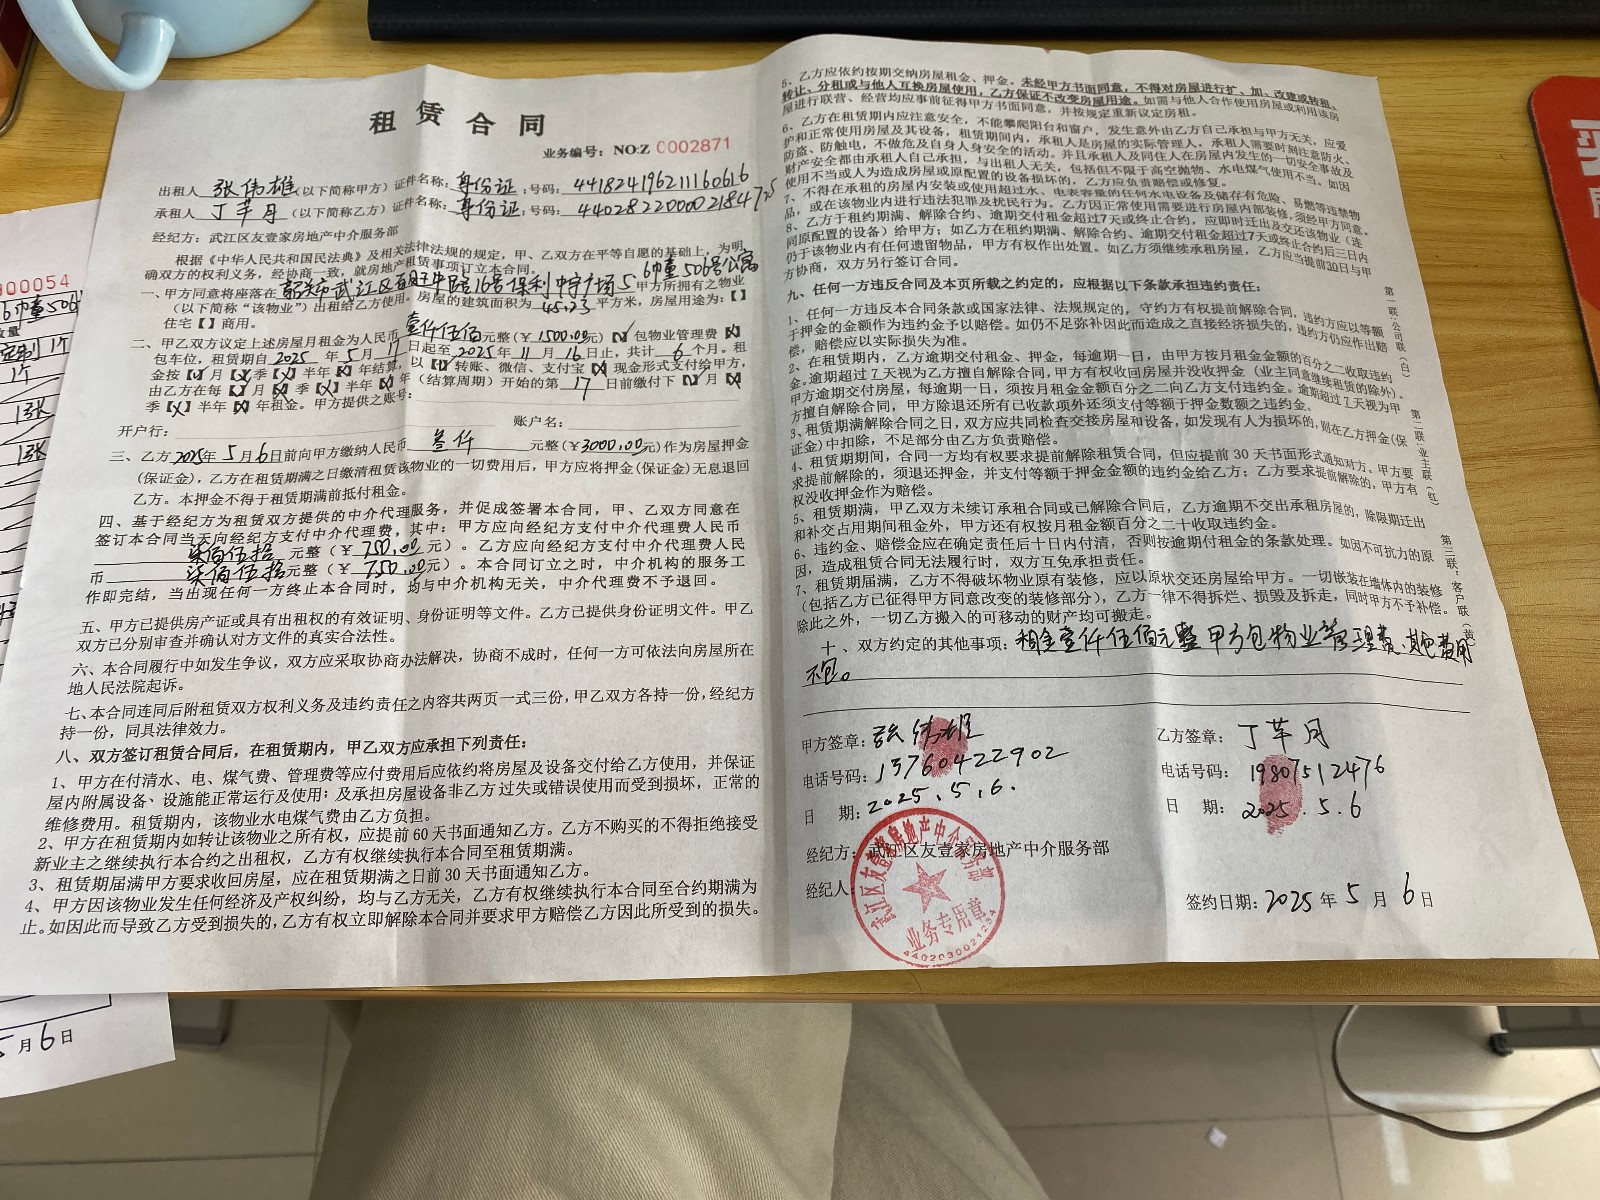 租赁合同
业务编号：NO:Z 0002871
出租人 张伟雄（以下简称甲方）证件名称：身份证：号码：441824196211160616
承租人 丁苹月（以下简称乙方）证件名称：身份证：号码：
经纪方：武江区友壹家房地产中介服务部
根据《中华人民共和国民法典》及相关法律法规的规定，甲、乙双方在平等自愿的基础上，为明
确双方的权利义务，经协商一致，就房地产租赁事项订立本合同。
一、甲方同意将座落在 韶关市武江区百旺中路16号保利中宇广场5 6幢506号公寓 甲方所拥有之物业
（以下简称“该物业”）出租给乙方使用。房屋的建筑面积为 45.23 平方米，房屋用途为：【】
住宅【】商用。
二、甲乙双方议定上述房屋月租金为人民币 壹仟伍佰 元整（￥1500.00元）【√】包物业管理费【X】
包车位，租赁期自 2025 年 5 月 日起至 2025 年 11 月 16 日止，共计 6 个月。租
金按【√】月【X】季【X】半年【X】年结算，以【√】转账、微信、支付宝【X】现金形式支付给甲方，
由乙方在每【√】月【X】季【X】半年【X】年（结算周期）开始的第 17 日前缴付下【√】月【X】
季【X】半年【X】年租金。甲方提供之账号：
开户行： 账户名：
三、乙方 2025年 5 月 6 日前向甲方缴纳人民币 叁仟 元整（￥3000.00元）作为房屋押金
（保证金），乙方在租赁期满之日缴清租赁该物业的一切费用后，甲方应将押金（保证金）无息退回
乙方。本押金不得于租赁期满前抵付租金。
四、基于经纪方为租赁双方提供的中介代理服务，并促成签署本合同，甲、乙双方同意在
签订本合同当天向经纪方支付中介代理费，其中：甲方应向经纪方支付中介代理费人民币
柒佰伍拾 元整（￥750.00元）。乙方应向经纪方支付中介代理费人民
币 柒佰伍拾 元整（￥750.00元）。本合同订立之时，中介机构的服务工
作即完结，当出现任何一方终止本合同时，均与中介机构无关，中介代理费不予退回。
五、甲方已提供房产证或具有出租权的有效证明、身份证明等文件。乙方已提供身份证明文件。甲乙
双方已分别审查并确认对方文件的真实合法性。
六、本合同履行中如发生争议，双方应采取协商办法解决，协商不成时，任何一方可依法向房屋所在
地人民法院起诉。
七、本合同连同后附租赁双方权利义务及违约责任之内容共两页一式三份，甲乙双方各持一份，经纪方
持一份，同具法律效力。
八、双方签订租赁合同后，在租赁期内，甲乙双方应承担下列责任：
1、甲方在付清水、电、煤气费、管理费等应付费用后应依约将房屋及设备交付给乙方使用，并保证
屋内附属设备、设施能正常运行及使用；及承担房屋设备非乙方过失或错误使用而受到损坏，正常的
维修费用。租赁期内，该物业水电煤气费由乙方负担。
2、甲方在租赁期内如转让该物业之所有权，应提前60天书面通知乙方。乙方不购买的不得拒绝接受
新业主之继续执行本合约之出租权，乙方有权继续执行本合同至租赁期满。
3、租赁期届满甲方要求收回房屋，应在租赁期满之日前30天书面通知乙方。
4、甲方因该物业发生任何经济及产权纠纷，均与乙方无关，乙方有权继续执行本合同至合约期满为
止。如因此而导致乙方受到损失的，乙方有权立即解除本合同并要求甲方赔偿乙方因此所受到的损失。
5、乙方应依约按期交纳房屋租金、押金。未经甲方书面同意，不得对房屋进行扩、加、改建或转租、
转让、分租或与他人互换房屋使用，乙方保证不改变房屋用途。如需与他人合作使用房屋或利用该房
屋进行联营、经营均应事前征得甲方书面同意，并按规定重新议定房租。
6、乙方在租赁期内应注意安全，不能攀爬阳台和窗户，发生意外由乙方自己承担与甲方无关，应爱
护和正常使用房屋及其设备，租赁期间内，承租人是房屋的实际管理人，承租人需要时刻注意防火、
防盗、防触电，不做危及自身人身安全的活动。并且承租人及同住人在房屋内发生的一切安全事故及
财产安全都由承租人自己承担，与出租人无关，包括但不限于高空抛物、水电煤气使用不当。如因
使用不当或人为造成房屋或原配置的设备损坏的，乙方应负责赔偿或修复。
7、不得在承租的房屋内安装或使用超过水、电表容量的任何水电设备及储存有危险、易燃等违禁物
品，或在该物业内进行违法犯罪及扰民行为。乙方因正常使用需要进行房屋内部装修，须经甲方同意。
8、乙方于租约期满、解除合约、逾期交付租金超过7天或终止合约，应即时迁出及交还该物业（连
同原配置的设备）给甲方；如乙方在租约期满、解除合约、逾期交付租金超过7天或终止合约后三日内
仍于该物业内有任何遗留物品，甲方有权作出处置。如乙方须继续承租房屋，乙方应当提前30日与甲
方协商，双方另行签订合同。
九、任何一方违反合同及本页所载之约定的，应根据以下条款承担违约责任：
1、任何一方违反本合同条款或国家法律、法规规定的，守约方有权提前解除合同，违约方应以等额
于押金的金额作为违约金予以赔偿。如仍不足弥补因此而造成之直接经济损失的，违约方仍应作出赔
偿，赔偿应以实际损失为准。
2、在租赁期内，乙方逾期交付租金、押金，每逾期一日，由甲方按月租金金额的百分之二收取违约
金。逾期超过7天视为乙方擅自解除合同，甲方有权收回房屋并没收押金（业主同意继续租赁的除外）。
甲方逾期交付房屋，每逾期一日，须按月租金金额百分之二向乙方支付违约金。逾期超过7天视为甲
方擅自解除合同，甲方除退还所有已收款项外还须支付等额于押金数额之违约金。
3、租赁期满解除合同之日，双方应共同检查交接房屋和设备，如发现有人为损坏的，则在乙方押金（保
证金）中扣除，不足部分由乙方负责赔偿。
4、租赁期期间，合同一方均有权要求提前解除租赁合同，但应提前30天书面形式通知对方。甲方要
求提前解除的，须退还押金，并支付等额于押金金额的违约金给乙方；乙方要求提前解除的，甲方有
权没收押金作为赔偿。
5、租赁期满，甲乙双方未续订承租合同或已解除合同后，乙方逾期不交出承租房屋的，除限期迁出
和补交占用期间租金外，甲方还有权按月租金额百分之二十收取违约金。
6、违约金、赔偿金应在确定责任后十日内付清，否则按逾期付租金的条款处理。如因不可抗力的原
因，造成租赁合同无法履行时，双方互免承担责任。
7、租赁期届满，乙方不得破坏物业原有装修，应以原状交还房屋给甲方。一切嵌装在墙体内的装修
（包括乙方已征得甲方同意改变的装修部分），乙方一律不得拆烂、损毁及拆走，同时甲方不予补偿。
除此之外，一切乙方搬入的可移动的财产均可搬走。
十、双方约定的其他事项：租金壹仟伍佰元整甲方包物业管理费、其他费用
不包。
甲方签章：张伟雄
电话号码：13760422902
日 期：2025.5.6.
乙方签章：丁苹月
电话号码：19807512476
日 期：2025.5.6
经纪方：武江区友壹家房地产中介服务部
经纪人：
签约日期：2025年 5 月 6 日
武江区友壹家房地产中介服务部
业务专用章
第一联：公司联（白）
第二联：业主联（红）
第三联：客户联（黄）
00054
6幢506
1个
1个
1张
1张
5月6日